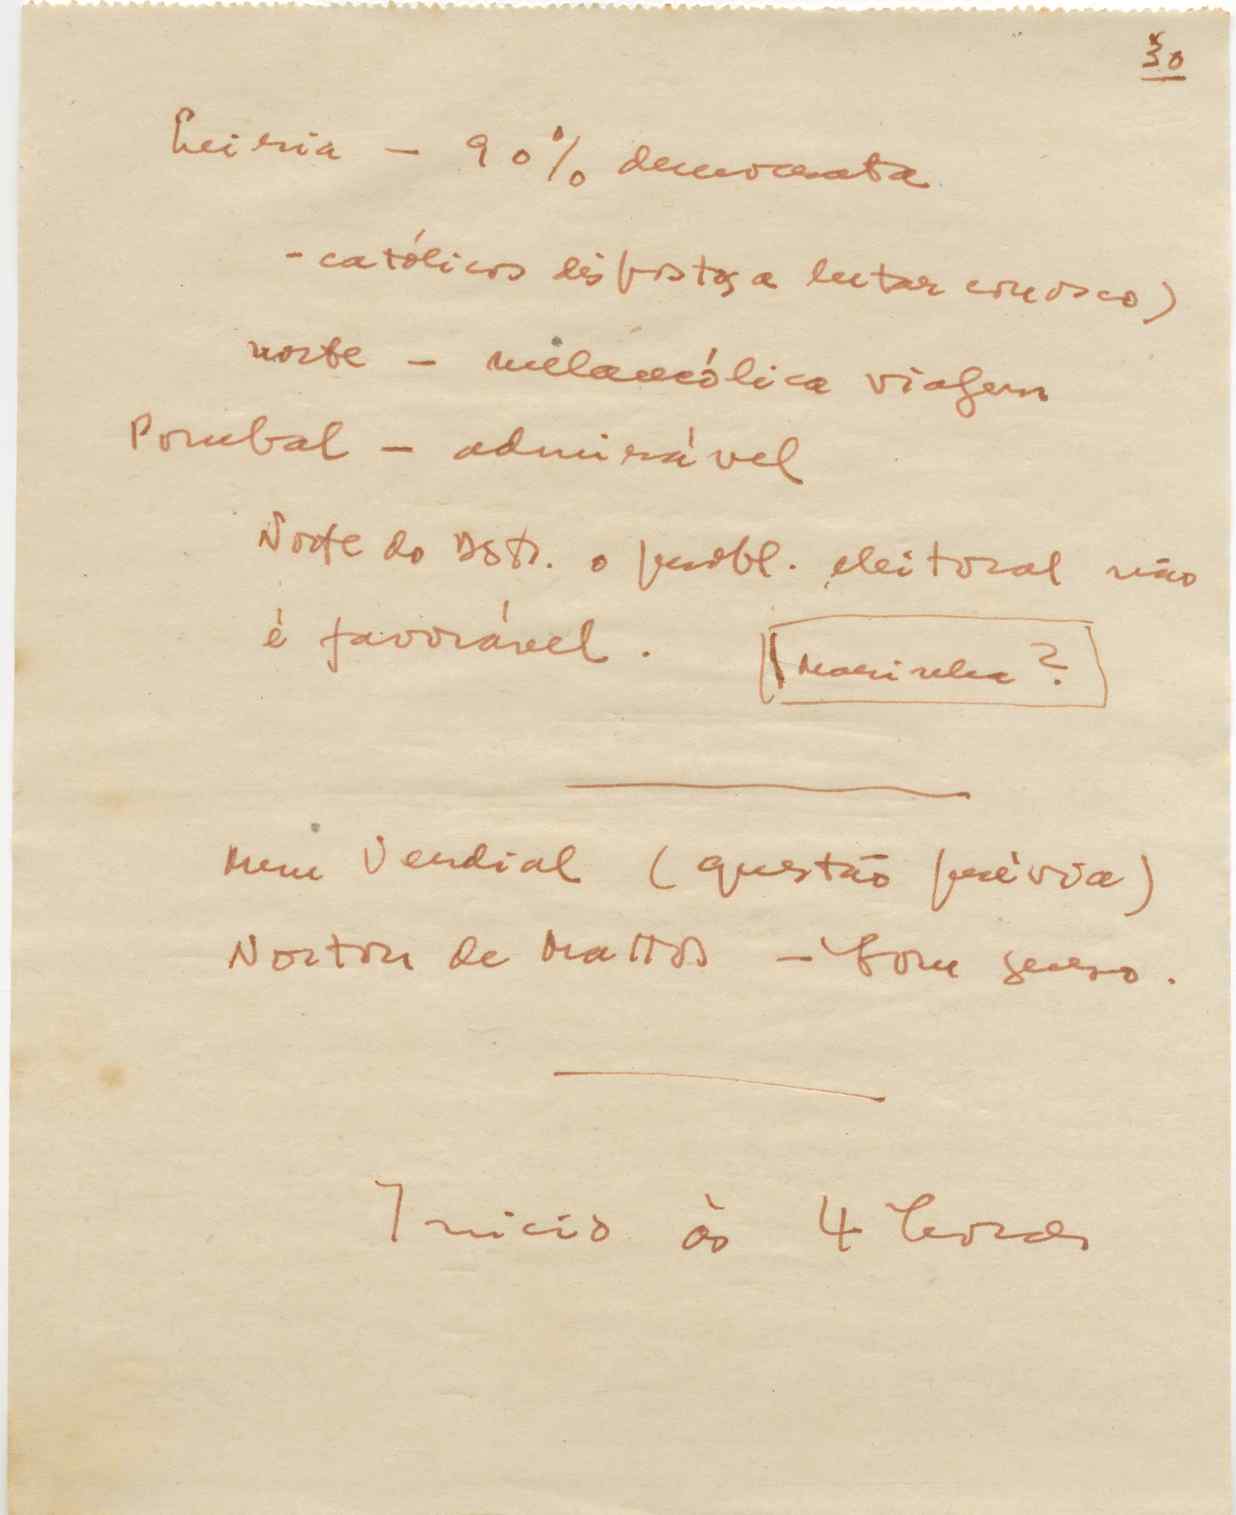 30
Leiria – 90% democrata
- católicos dispostos a lutar conosco)
norte – melancólica viagem
Pombal – admirável
Norte do Distr. o probl. eleitoral não
é favorável.
Marinha?
Mem Verdial (questão prévia)
Norton de Mattos – bom senso.
Inicio às 4 horas